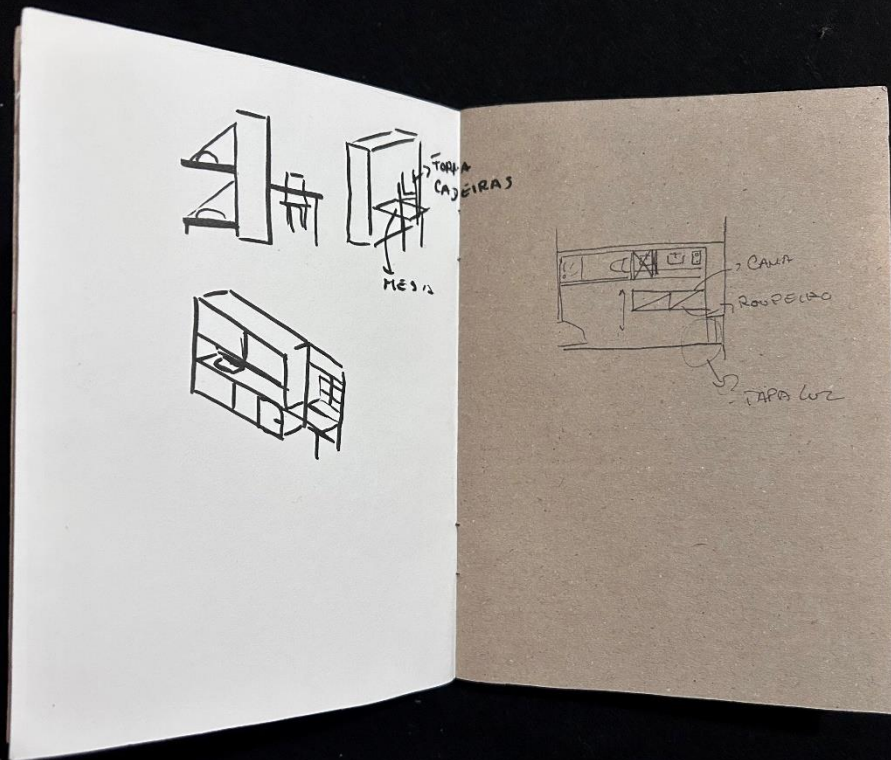 TORNA
CADEIRAS
MESA
CAMA
ROUPEIRO
TAPA LUZ